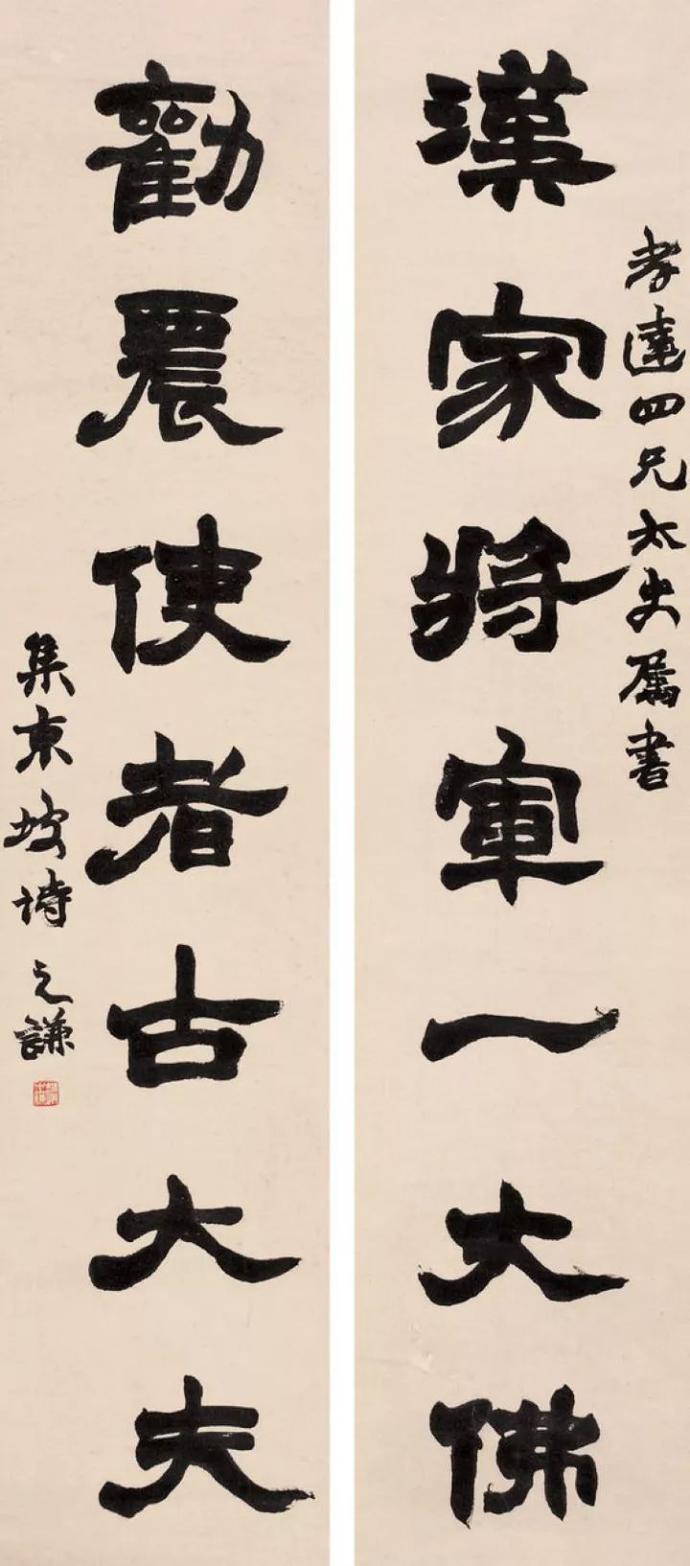 孝達四兄太史属書
漢家將軍一大佛
勸農使者古大夫
集東坡詩 之謙